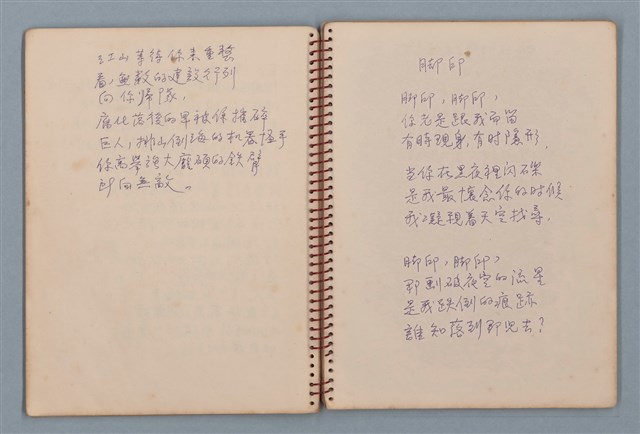 江山等待你来重整
看，無敵的建設行列
向你歸隊，
腐化落後的早被你摧碎
巨人，排山倒海的机器怪手
你高舉強大龐碩的鉄臂
所向無敵。
脚印
脚印，脚印，
你老是跟我而留
有時現身，有时隱形，
当你在黑夜裡闪礫
是我最懷念你的时候
我凝視着天空找尋。
脚印，脚印，
那劃破夜空的流星
是我跌倒的痕跡
誰知落到那兒去？